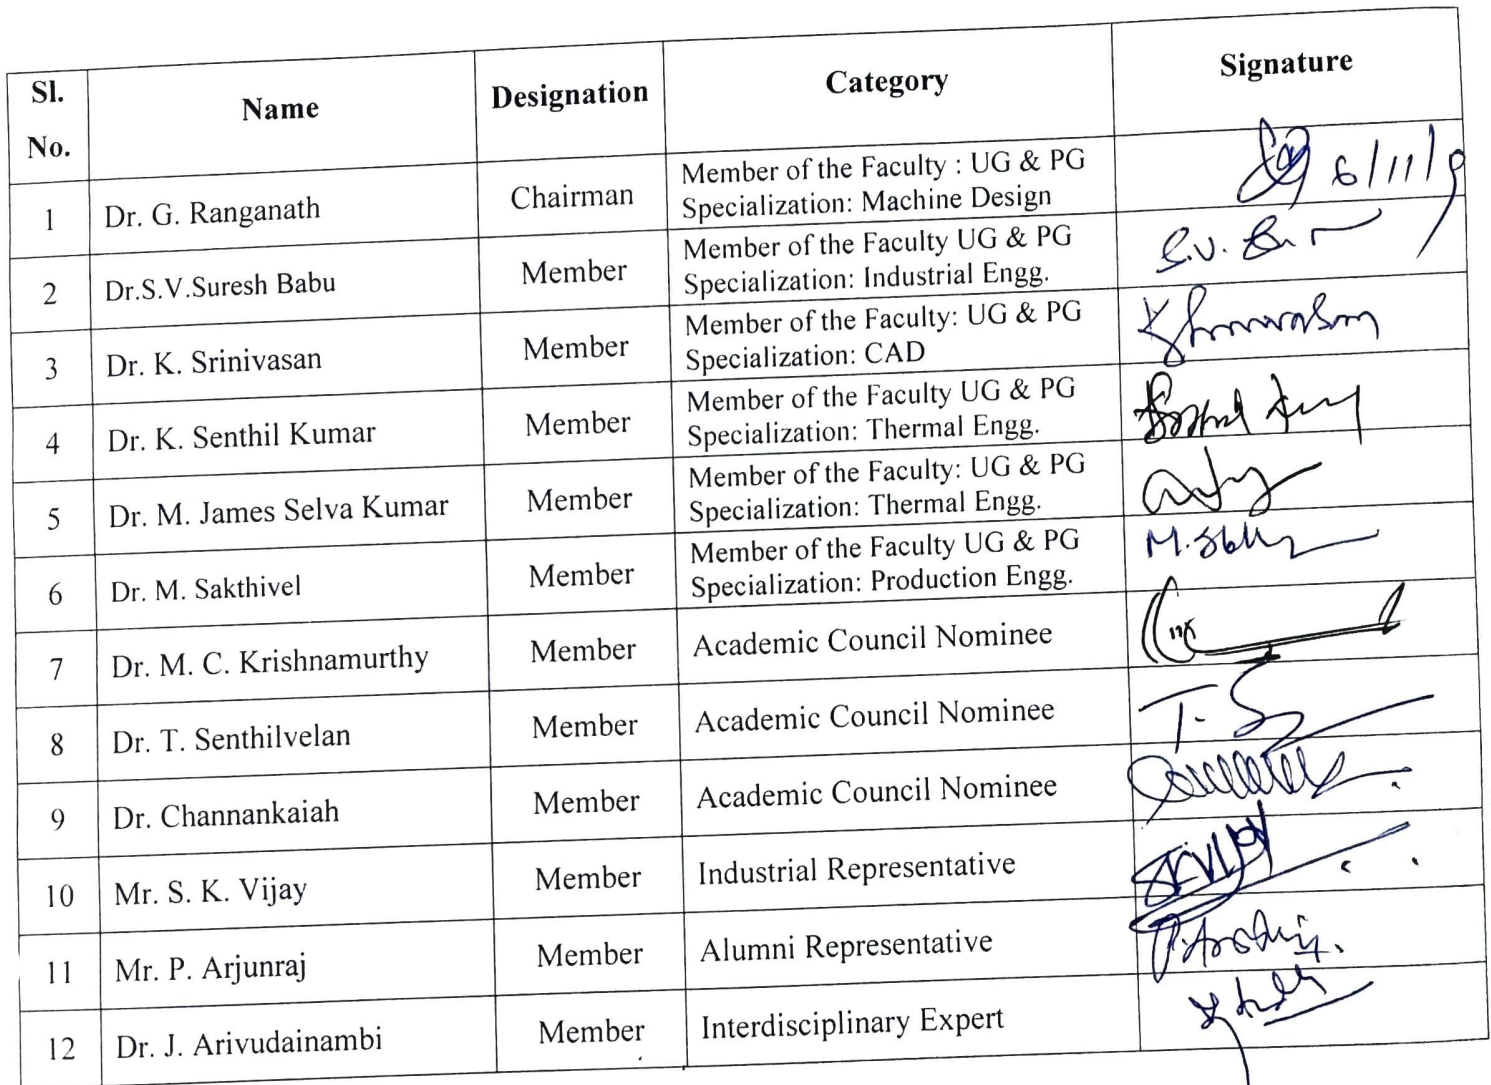 Sl.
No.
Name
Designation
Category
Signature
1
Dr. G. Ranganath
Chairman
Member of the Faculty : UG & PG
Specialization: Machine Design
6/11/9
2
Dr.S.V.Suresh Babu
Member
Member of the Faculty UG & PG
Specialization: Industrial Engg.
S.V.
3
Dr. K. Srinivasan
Member
Member of the Faculty: UG & PG
Specialization: CAD
4
Dr. K. Senthil Kumar
Member
Member of the Faculty UG & PG
Specialization: Thermal Engg.
5
Dr. M. James Selva Kumar
Member
Member of the Faculty: UG & PG
Specialization: Thermal Engg.
6
Dr. M. Sakthivel
Member
Member of the Faculty UG & PG
Specialization: Production Engg.
7
Dr. M. C. Krishnamurthy
Member
Academic Council Nominee
8
Dr. T. Senthilvelan
Member
Academic Council Nominee
9
Dr. Channankaiah
Member
Academic Council Nominee
10
Mr. S. K. Vijay
Member
Industrial Representative
11
Mr. P. Arjunraj
Member
Alumni Representative
12
Dr. J. Arivudainambi
Member
Interdisciplinary Expert